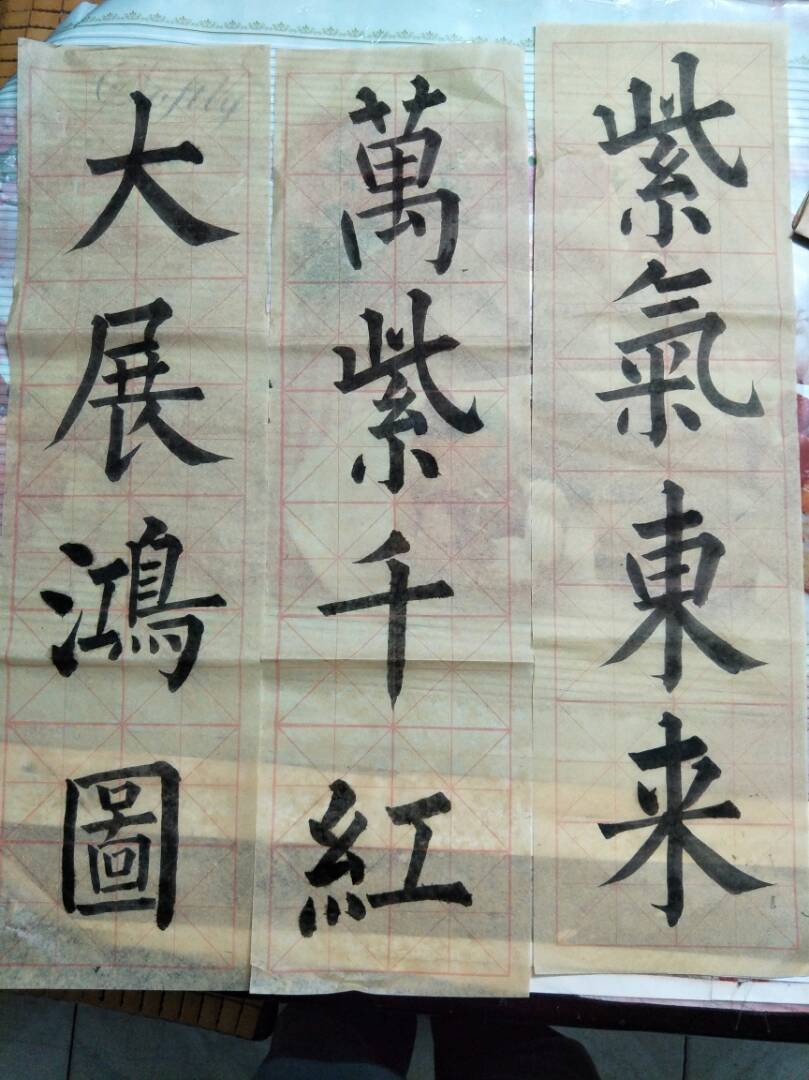 紫氣東来
萬紫千紅
大展鴻圖